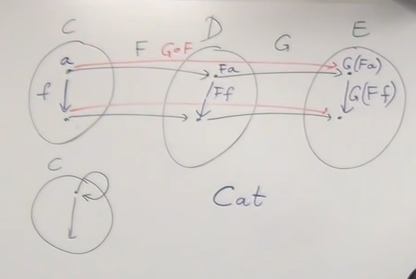 C D E
F G∘F G
a Fa G(Fa)
f Ff G(Ff)
C
Cat